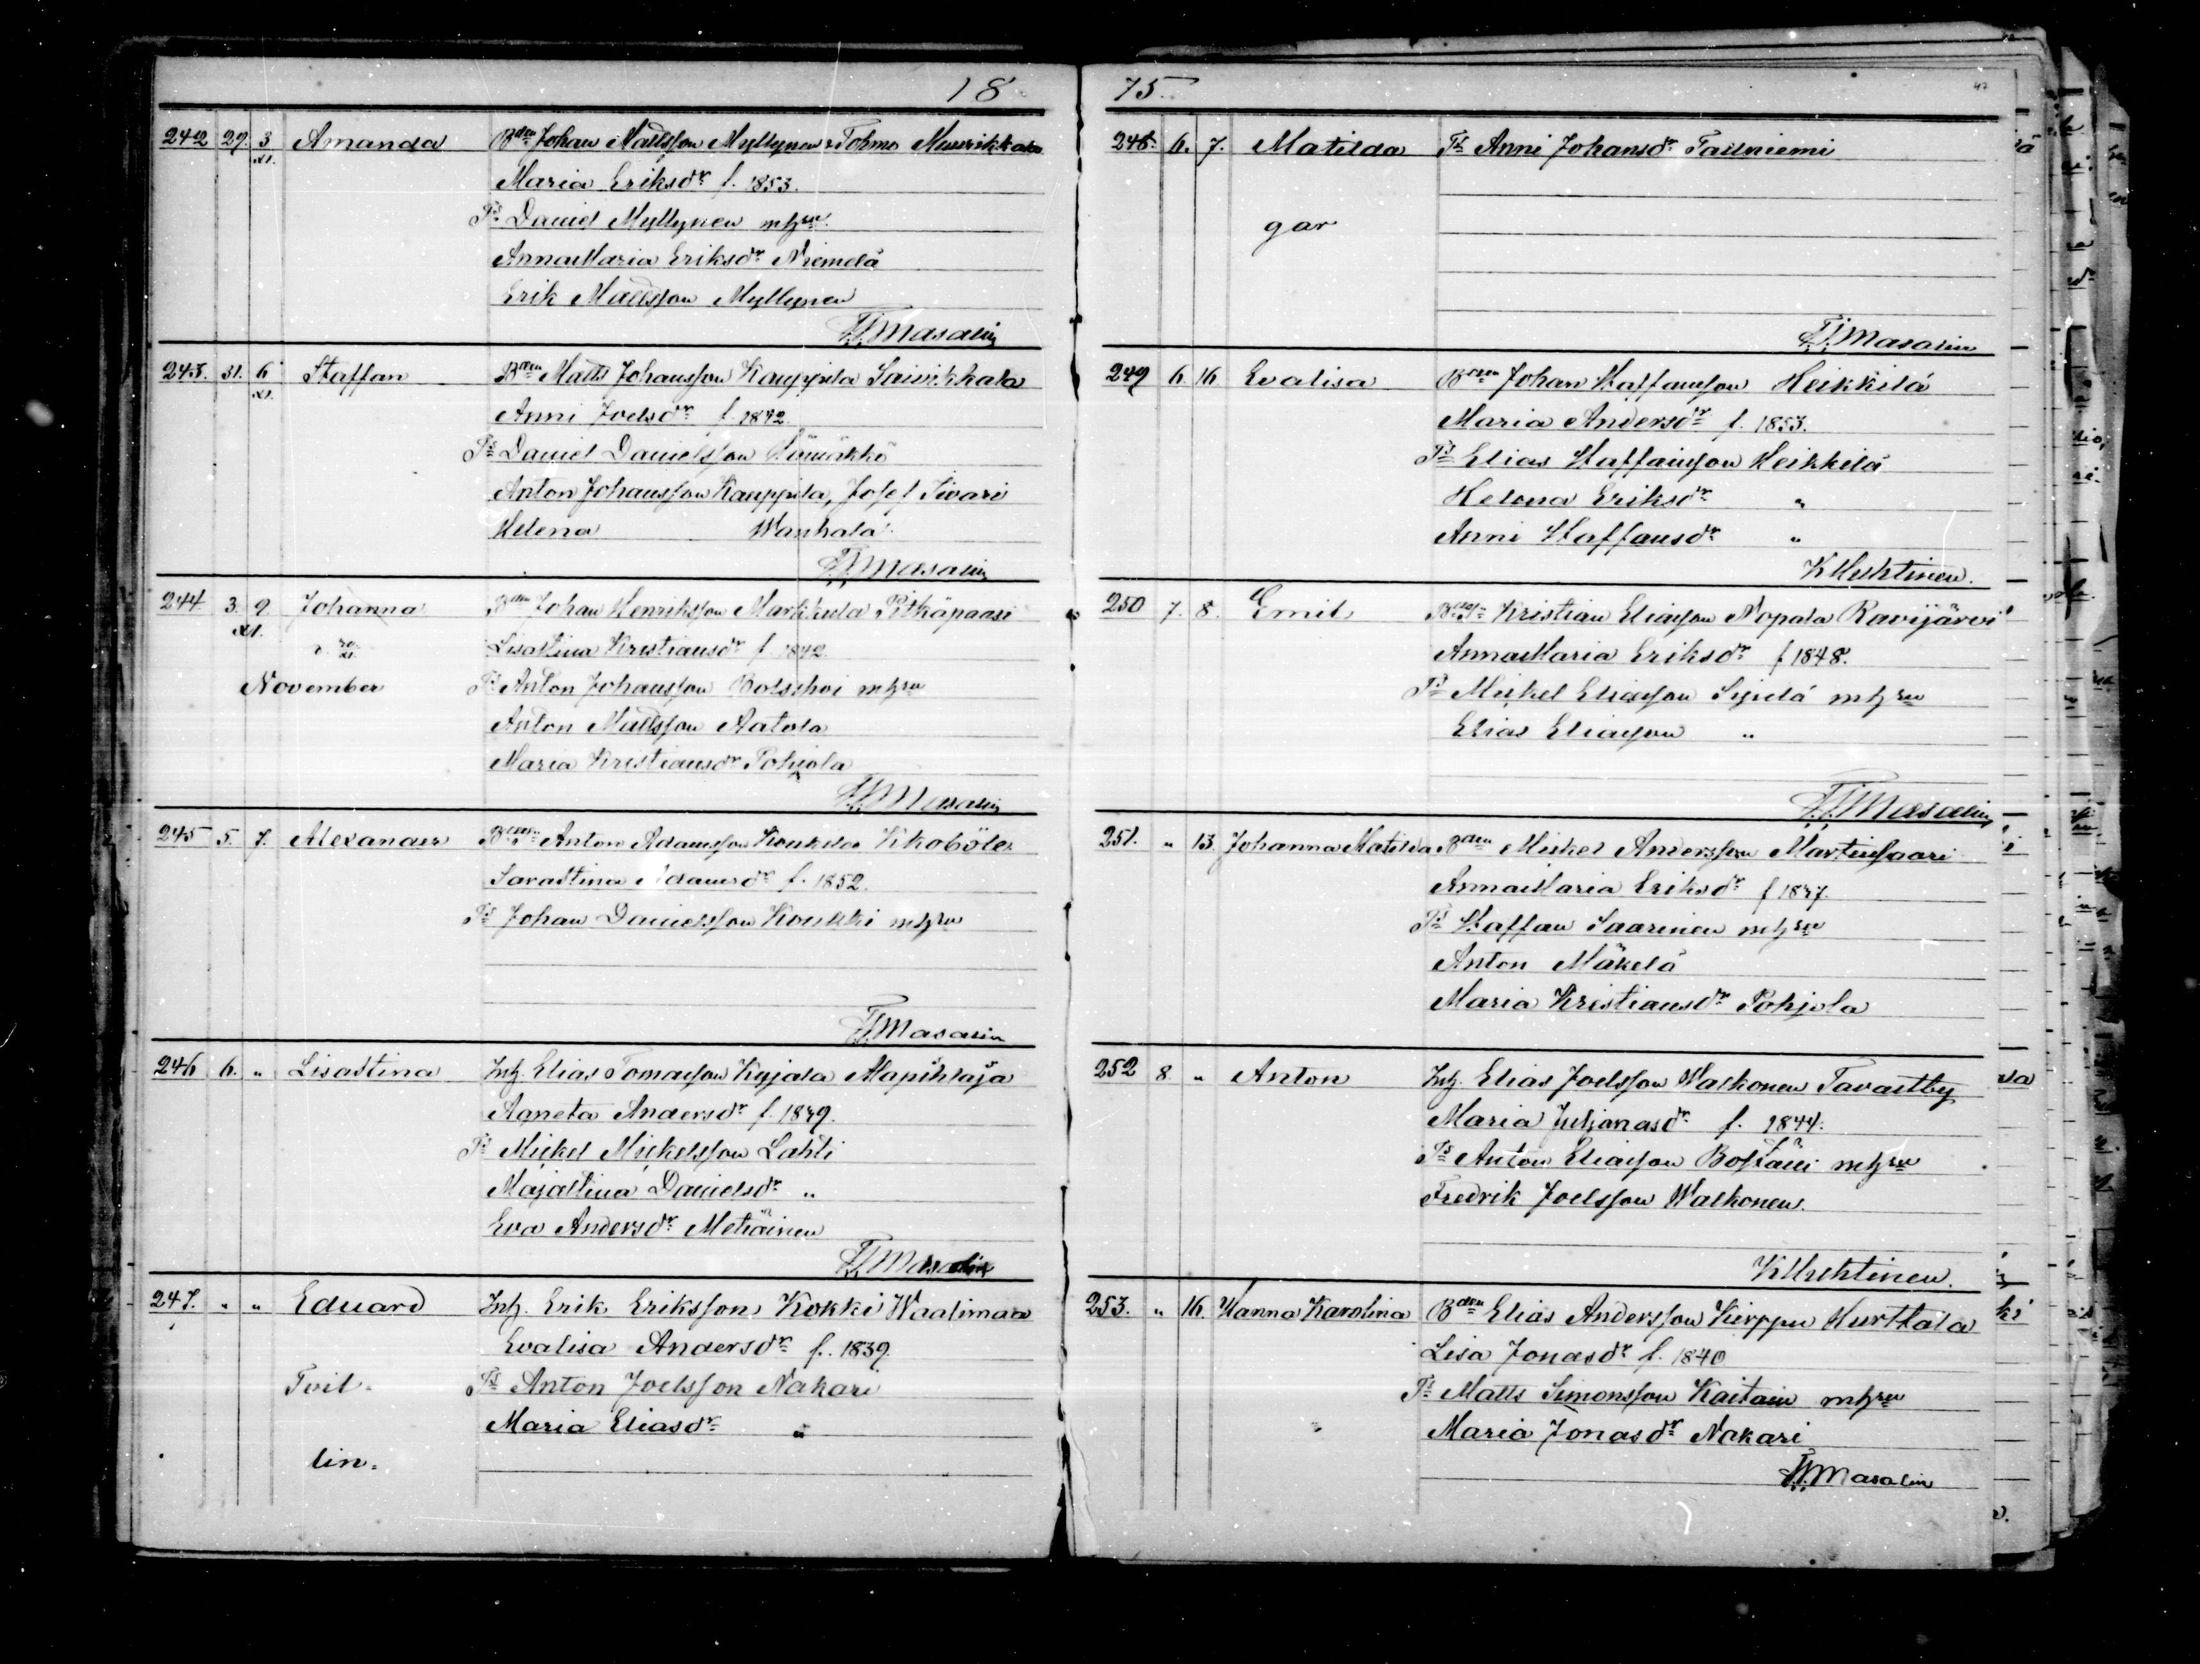 18
242 29. 3 Amanda Bden Johan Mattsson Myllynen Tohmo Muurikkala
XI.
Maria Eriksdr f. 1853.
Ts Daniel Myllynen mhru
AnnaMaria Eriksdr Niemelä
Erik Mattsson Myllynen
F.J. Masalin
243. 31. 6 Staffan Bden Matts Johansson Kauppila Saivikkala
XI.
Anni Joelsdr f. 1842.
Ts Daniel Danielsson
Anton Johansson Kauppila, Josef Sivari
Helena Wanhala
F.J. Masalin
244 3. 9. Johanna Bden Johan Henriksson Markkula Pitkäpaasi
XI.
Lisastina Kristiansdr f. 1842.
November Ts Anton Johansson mhru
Anton Mattsson Aatola
Maria Kristiansdr Pohjola
F.J. Masalin
245 5. 7. Alexander Anton Adamsson Koukila Kkoböle
Sarastina Adamsdr f. 1852.
Ts Johan Danielsson Koukki mhru
F.J. Masalin
246 6. „ Lisastina Inh. Elias Tomasson Kyjala Mapihlaja
Agneta Andersdr f. 1849.
Ts Mickel Mickelsson Lahti
Majastina Danielsdr „
Eva Andersdr Metiäinen
F.J. Masalin
247. „ „ Eduard Inh. Erik Eriksson Kokki Waalimaa
Evalisa Andersdr f. 1839.
Tvil- Ts Anton Joelsson Nakari
Maria Eliasdr „
lin-
75.
248. 6. 7. Matilda Ts Anni Johansdr Tailniemi
gar
F.J. Masalin
249 6 16 Evalisa Bden Johan Staffansson Heikkilä
Maria Andersdr f. 1853.
Ts Elias Staffansson Heikkilä
Helena Eriksdr „
Anni Staffansdr „
K Huhtinen.
250 7. 8. Emil Kristian Eliasson Nopala Ravijärvi
AnnaMaria Eriksdr f 1848.
Ts Mickel Eliasson Sipilä mhru
Elias Eliasson „
F.J. Masalin
251. „ 13. Johanna Matilda Bden Mickel Andersson Martinsaari
AnnaMaria Eriksdr f 1837.
Ts Staffan Saarinen mhru
Anton Mäkelä
Maria Kristiansdr Pohjola
252 8. „ Anton Inh. Elias Joelsson Walkonen Tavastby
Maria Juljanasdr f. 1844.
Ts Anton Eliasson mhru
Fredrik Joelsson Walkonen.
K Huhtinen.
253. „ 16. Hanna Karolina Bden Elias Andersson Kierppu Hurttala
Lisa Jonasdr f. 1840
Ts Matts Simonsson Kaitain mhru
Maria Jonasdr Nakari
F.J. Masalin